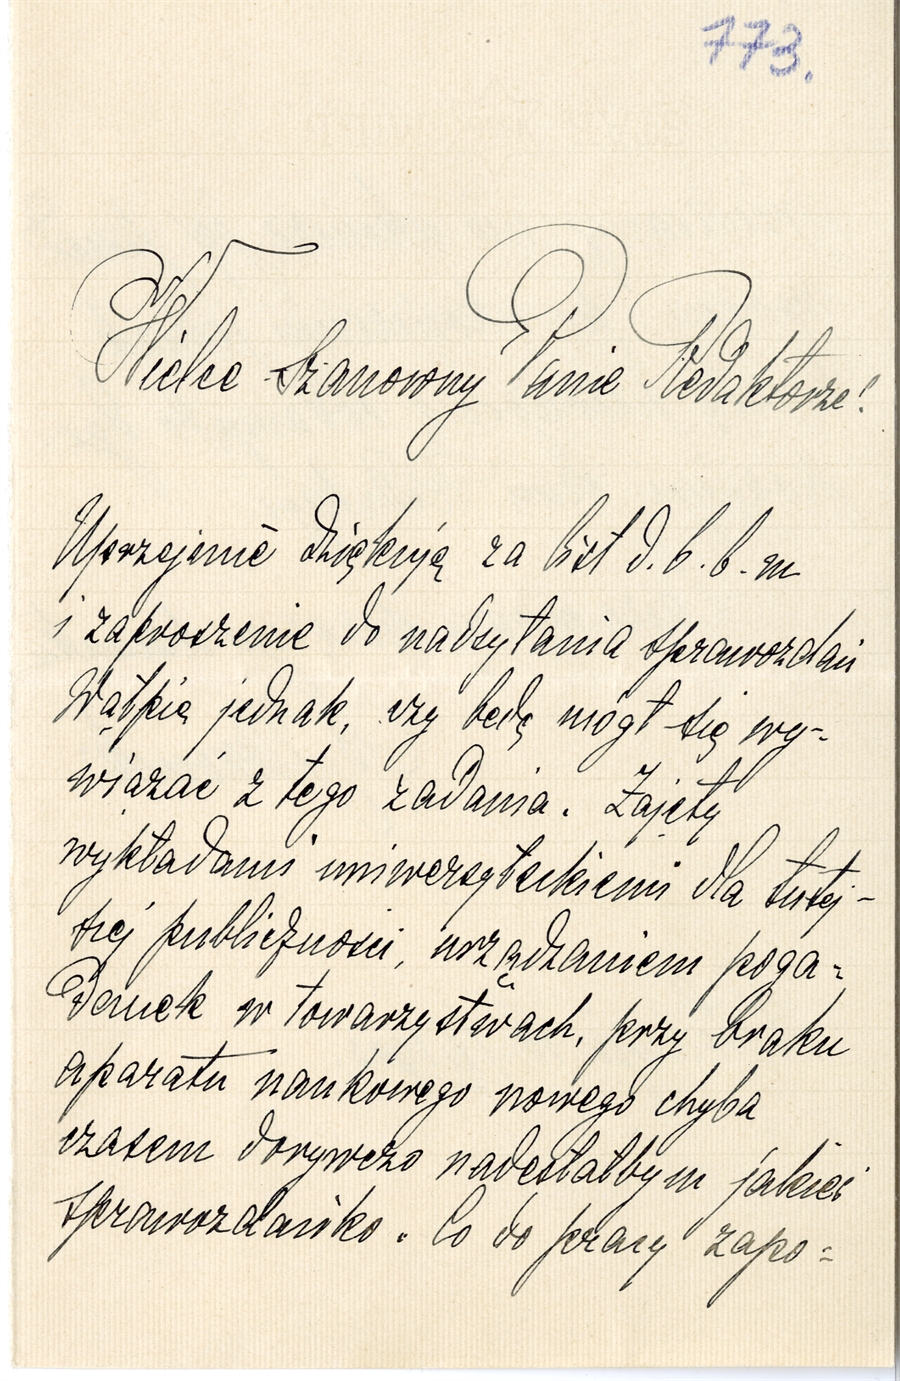 773.
Wielce Szanowny Panie Redaktorze!
Uprzejmie dziękuję za list d. b. b. m
i zaproszenie do nadsyłania sprawozdań
Wątpię jednak, czy będę mógł się wy-
wiązać z tego zadania. Zajęty
wykładami uniwersyteckiemi dla tutej-
szej publiczności, urządzaniem poga-
danek w towarzystwach, przy braku
aparatu naukowego nowego chyba
czasem dorywczo nadesłałbym jakieś
sprawozdańko. Co do pracy zapo-